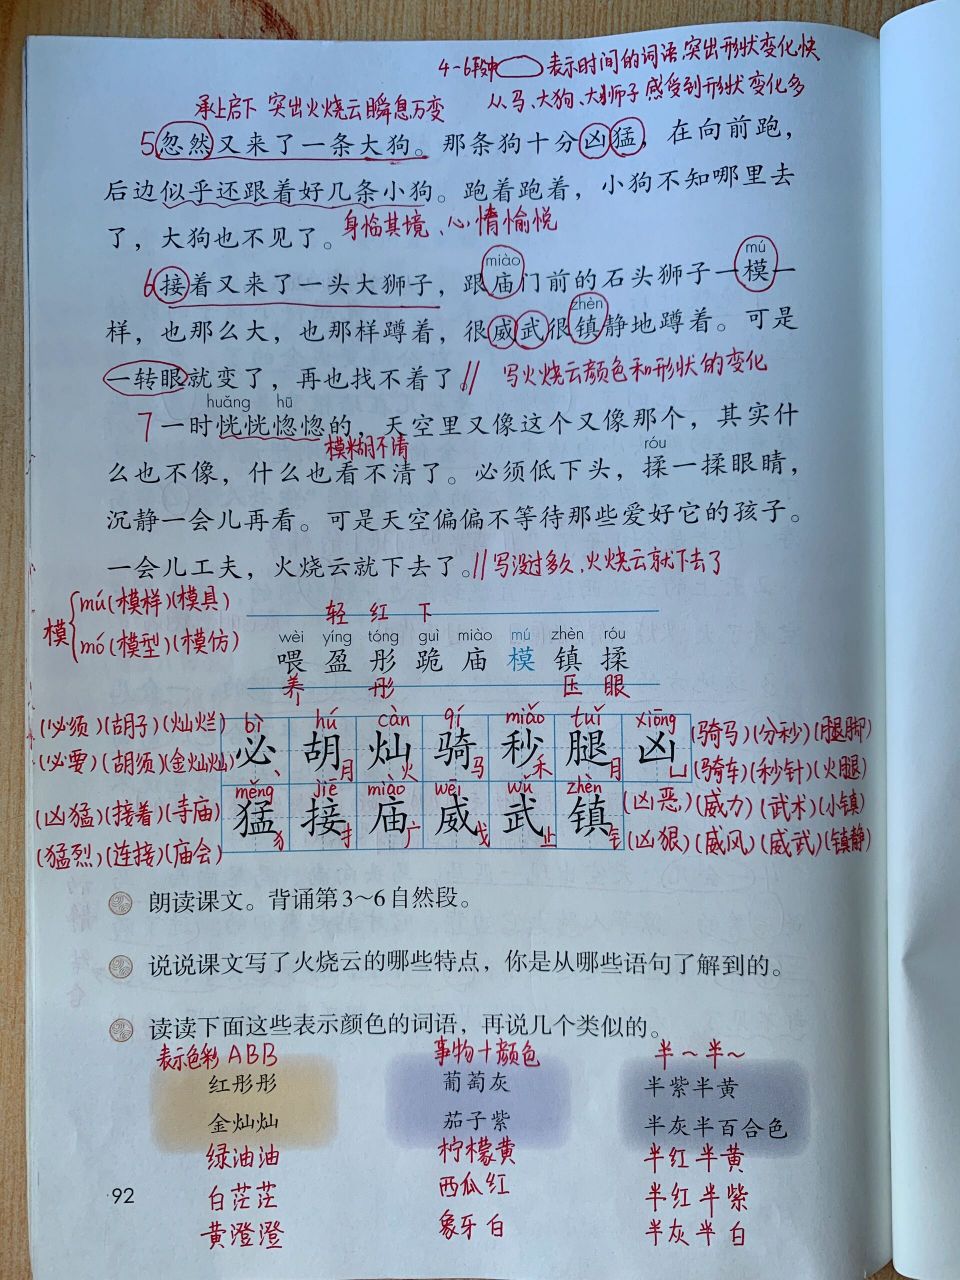 4-6段中 表示时间的词语,突出形状变化快
承上启下 突出火烧云瞬息万变 从马、大狗、大狮子感受到形状变化多
5忽然又来了一条大狗。那条狗十分凶猛，在向前跑，
后边似乎还跟着好几条小狗。跑着跑着，小狗不知哪里去
了，大狗也不见了。身临其境、心情愉悦
miào mú
6接着又来了一头大狮子，跟庙门前的石头狮子一模一
zhèn
样，也那么大，也那样蹲着，很威武很镇静地蹲着。可是
一转眼就变了，再也找不着了。// 写火烧云颜色和形状的变化
huǎng hū
7一时恍恍惚惚的，天空里又像这个又像那个，其实什
模糊不清 róu
么也不像，什么也看不清了。必须低下头，揉一揉眼睛，
沉静一会儿再看。可是天空偏偏不等待那些爱好它的孩子。
一会儿工夫，火烧云就下去了。//写没过多久、火烧云就下去了
模 mú(模样)(模具)
mó(模型)(模仿)
轻 红 下
wèi yíng tóng guì miào mú zhèn róu
喂 盈 彤 跪 庙 模 镇 揉
养 丹 压 眼
(必须)(胡子)(灿烂) bì hú càn qí miǎo tuǐ xiōng (骑马)(分秒)(腿脚)
(必要)(胡须)(金灿灿) 必 胡 灿 骑 秒 腿 凶 (骑车)(秒针)(火腿)
丶 月 火 马 禾 月 凵
měng jiē miào wēi wǔ zhèn
(凶猛)(接着)(寺庙) 猛 接 庙 威 武 镇 (凶恶)(威力)(武术)(小镇)
(猛烈)(连接)(庙会) 犭 扌 广 戈 止 钅 (凶狠)(威风)(威武)(镇静)
朗读课文。背诵第3~6自然段。
说说课文写了火烧云的哪些特点，你是从哪些语句了解到的。
读读下面这些表示颜色的词语，再说几个类似的。
表示色彩ABB 事物+颜色 半~半~
红彤彤 葡萄灰 半紫半黄
金灿灿 茄子紫 半灰半百合色
绿油油 柠檬黄 半红半黄
白茫茫 西瓜红 半红半紫
黄澄澄 象牙白 半灰半白
92